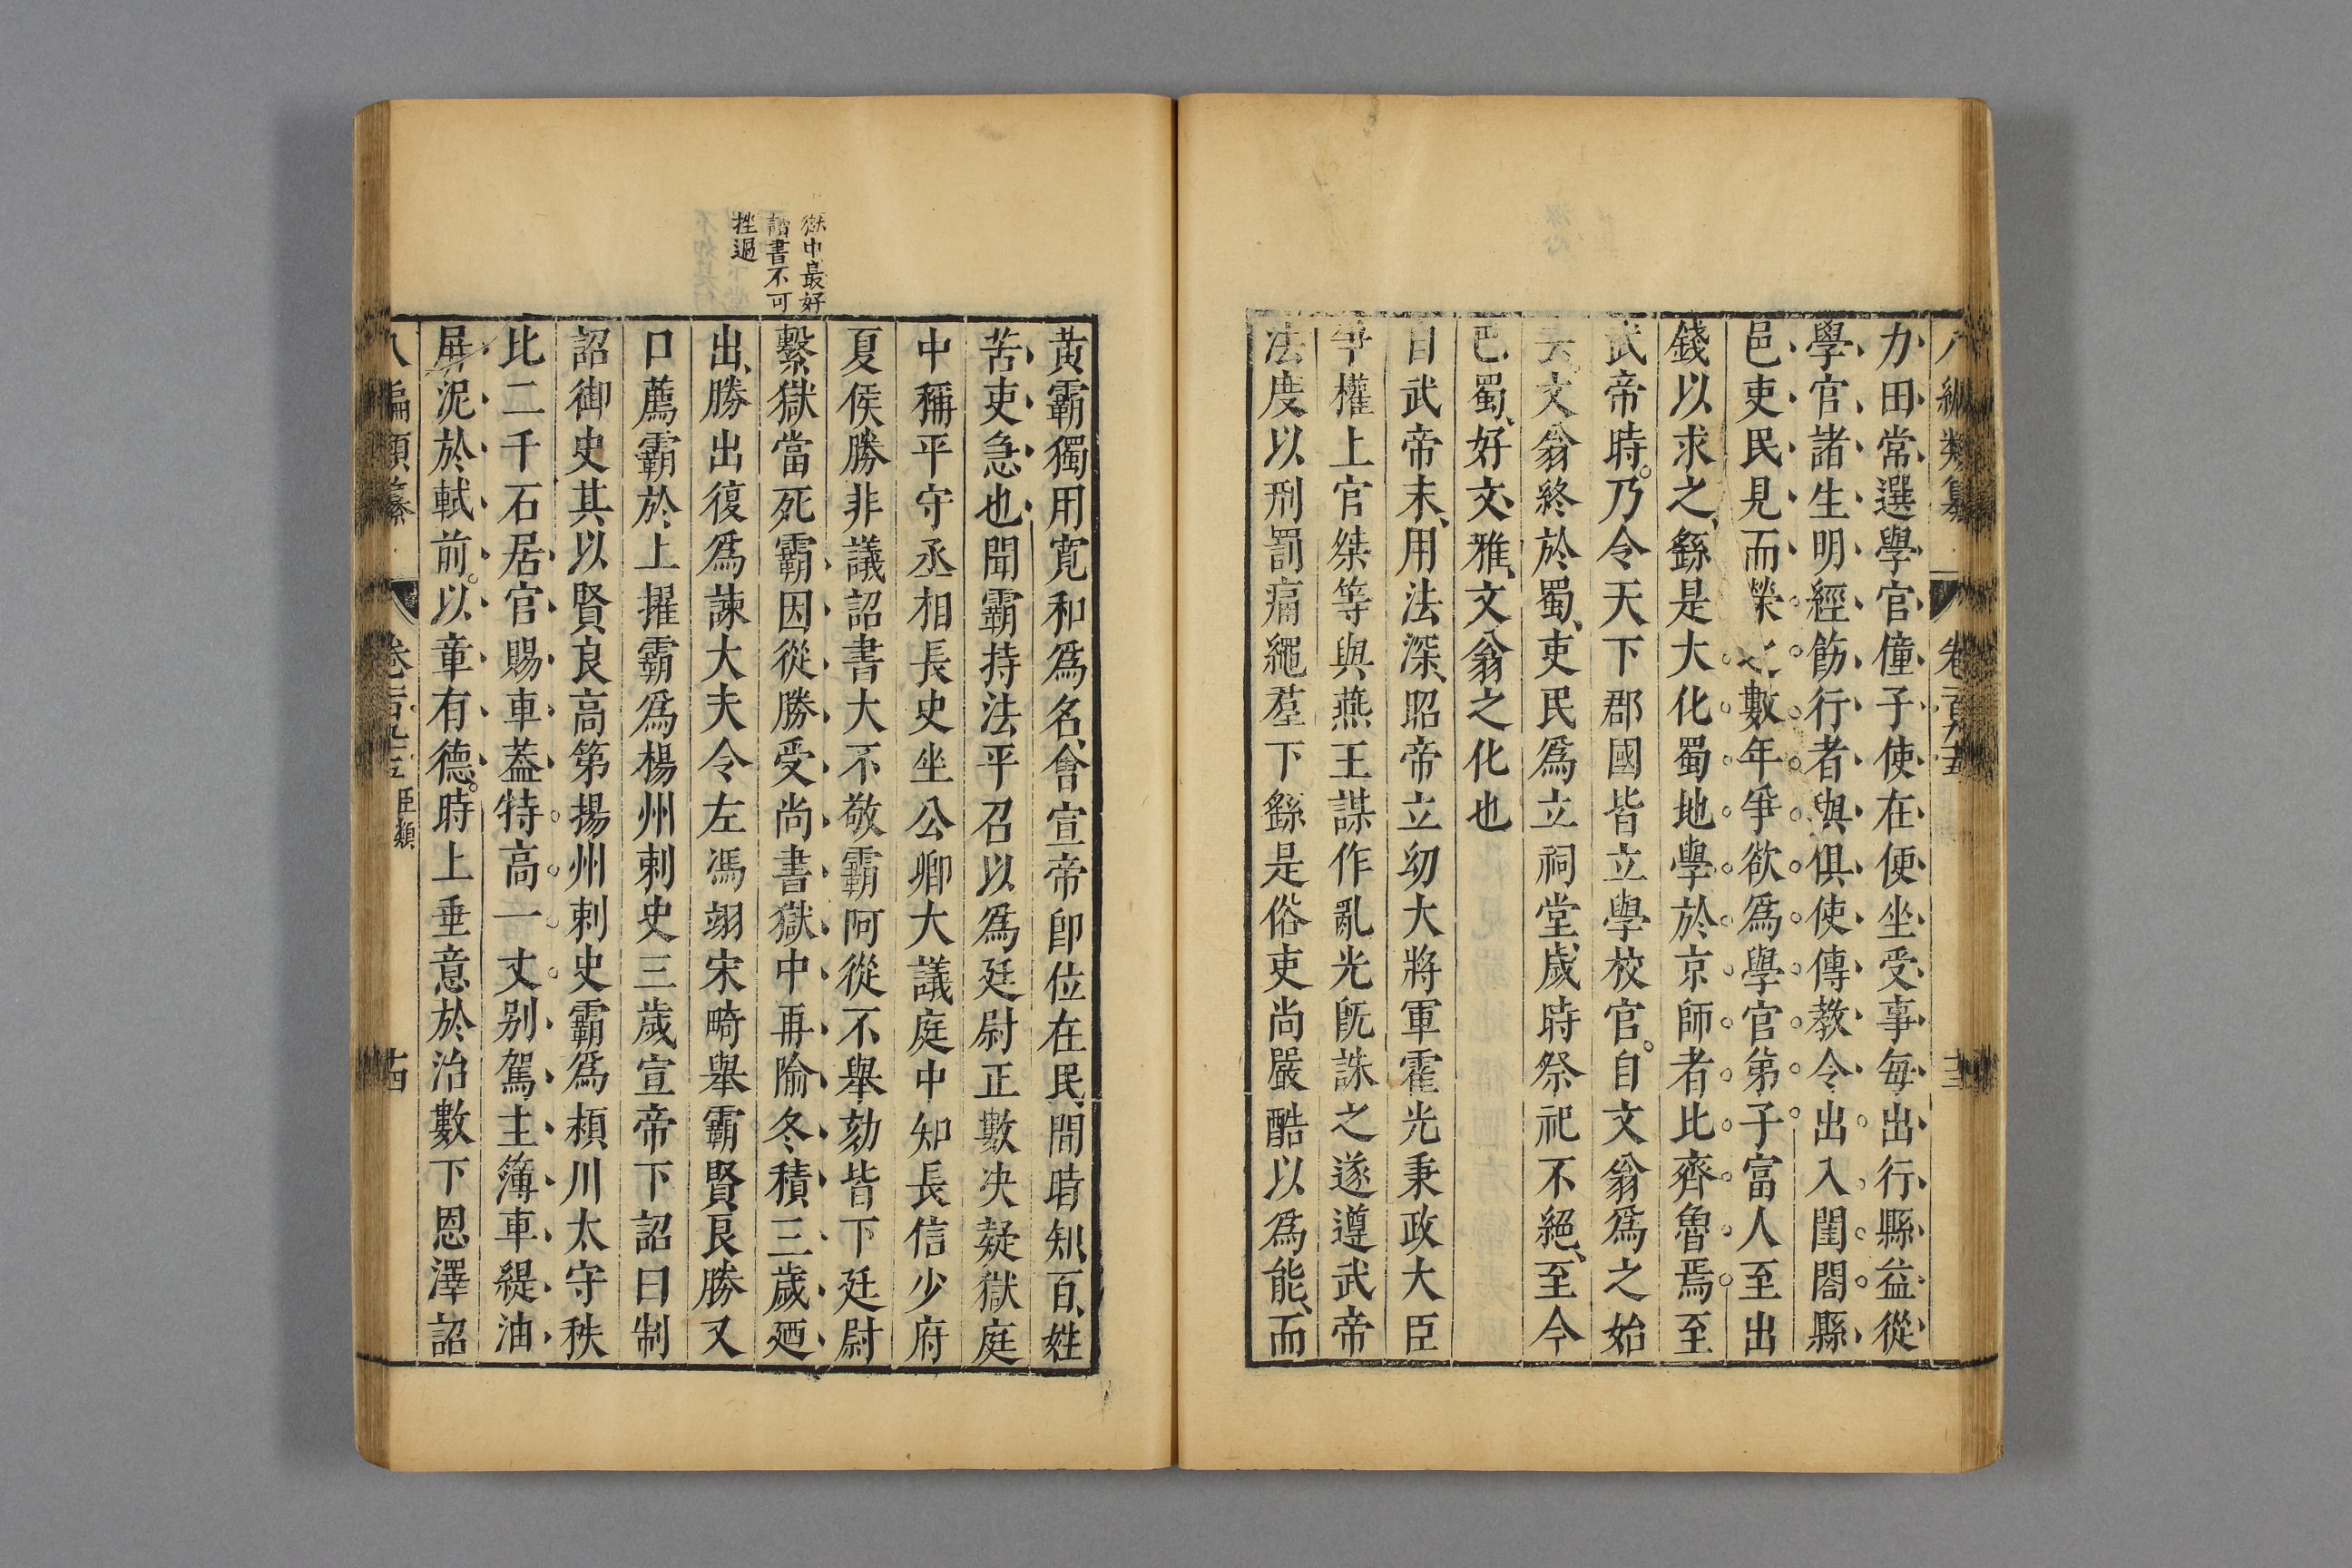 力田常選學官僮子使在便坐受事每出行縣益從
學官諸生明經飭行者與俱使傳教令出入閨閤縣
邑吏民見而榮之數年爭欲爲學官第子富人至出
錢以求之繇是大化蜀地學於京師者比齊魯焉至
武帝時乃令天下郡國皆立學校官自文翁爲之始
云文翁終於蜀吏民爲立祠堂歲時祭祀不絕至今
巴蜀好文雅文翁之化也
自武帝末用法深昭帝立幼大將軍霍光秉政大臣
爭權上官桀等與燕王謀作亂光旣誅之遂遵武帝
法度以刑罰痛繩羣下繇是俗吏尚嚴酷以爲能而
獄中最好
讀書不可
挫過
黃霸獨用寬和爲名會宣帝卽位在民間時知百姓
苦吏急也聞霸持法平召以爲廷尉正數决疑獄庭
中稱平守丞相長史坐公卿大議庭中知長信少府
夏侯勝非議詔書大不敬霸阿從不舉劾皆下廷尉
繫獄當死霸因從勝受尚書獄中再隃冬積三歲廼
出勝出復爲諫大夫令左馮翊宋畸舉霸賢良勝又
口薦霸於上擢霸爲楊州刺史三歲宣帝下詔曰制
詔御史其以賢良高第揚州刺史霸爲穎川太守秩
比二千石居官賜車蓋特高一丈别駕主簿車緹油
屏泥於軾前以章有德時上垂意於治數下恩澤詔
八編類纂 臣類 十四